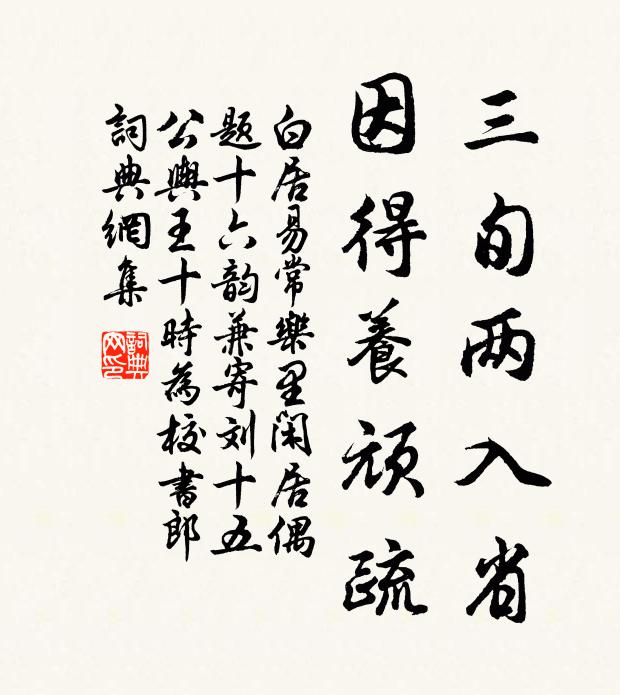 三旬两入省
因得養頑疏
白居易常樂里閑居偶
題十六韵兼寄刘十五
公輿王十時為校書郎
詞典網集
詞典
网印